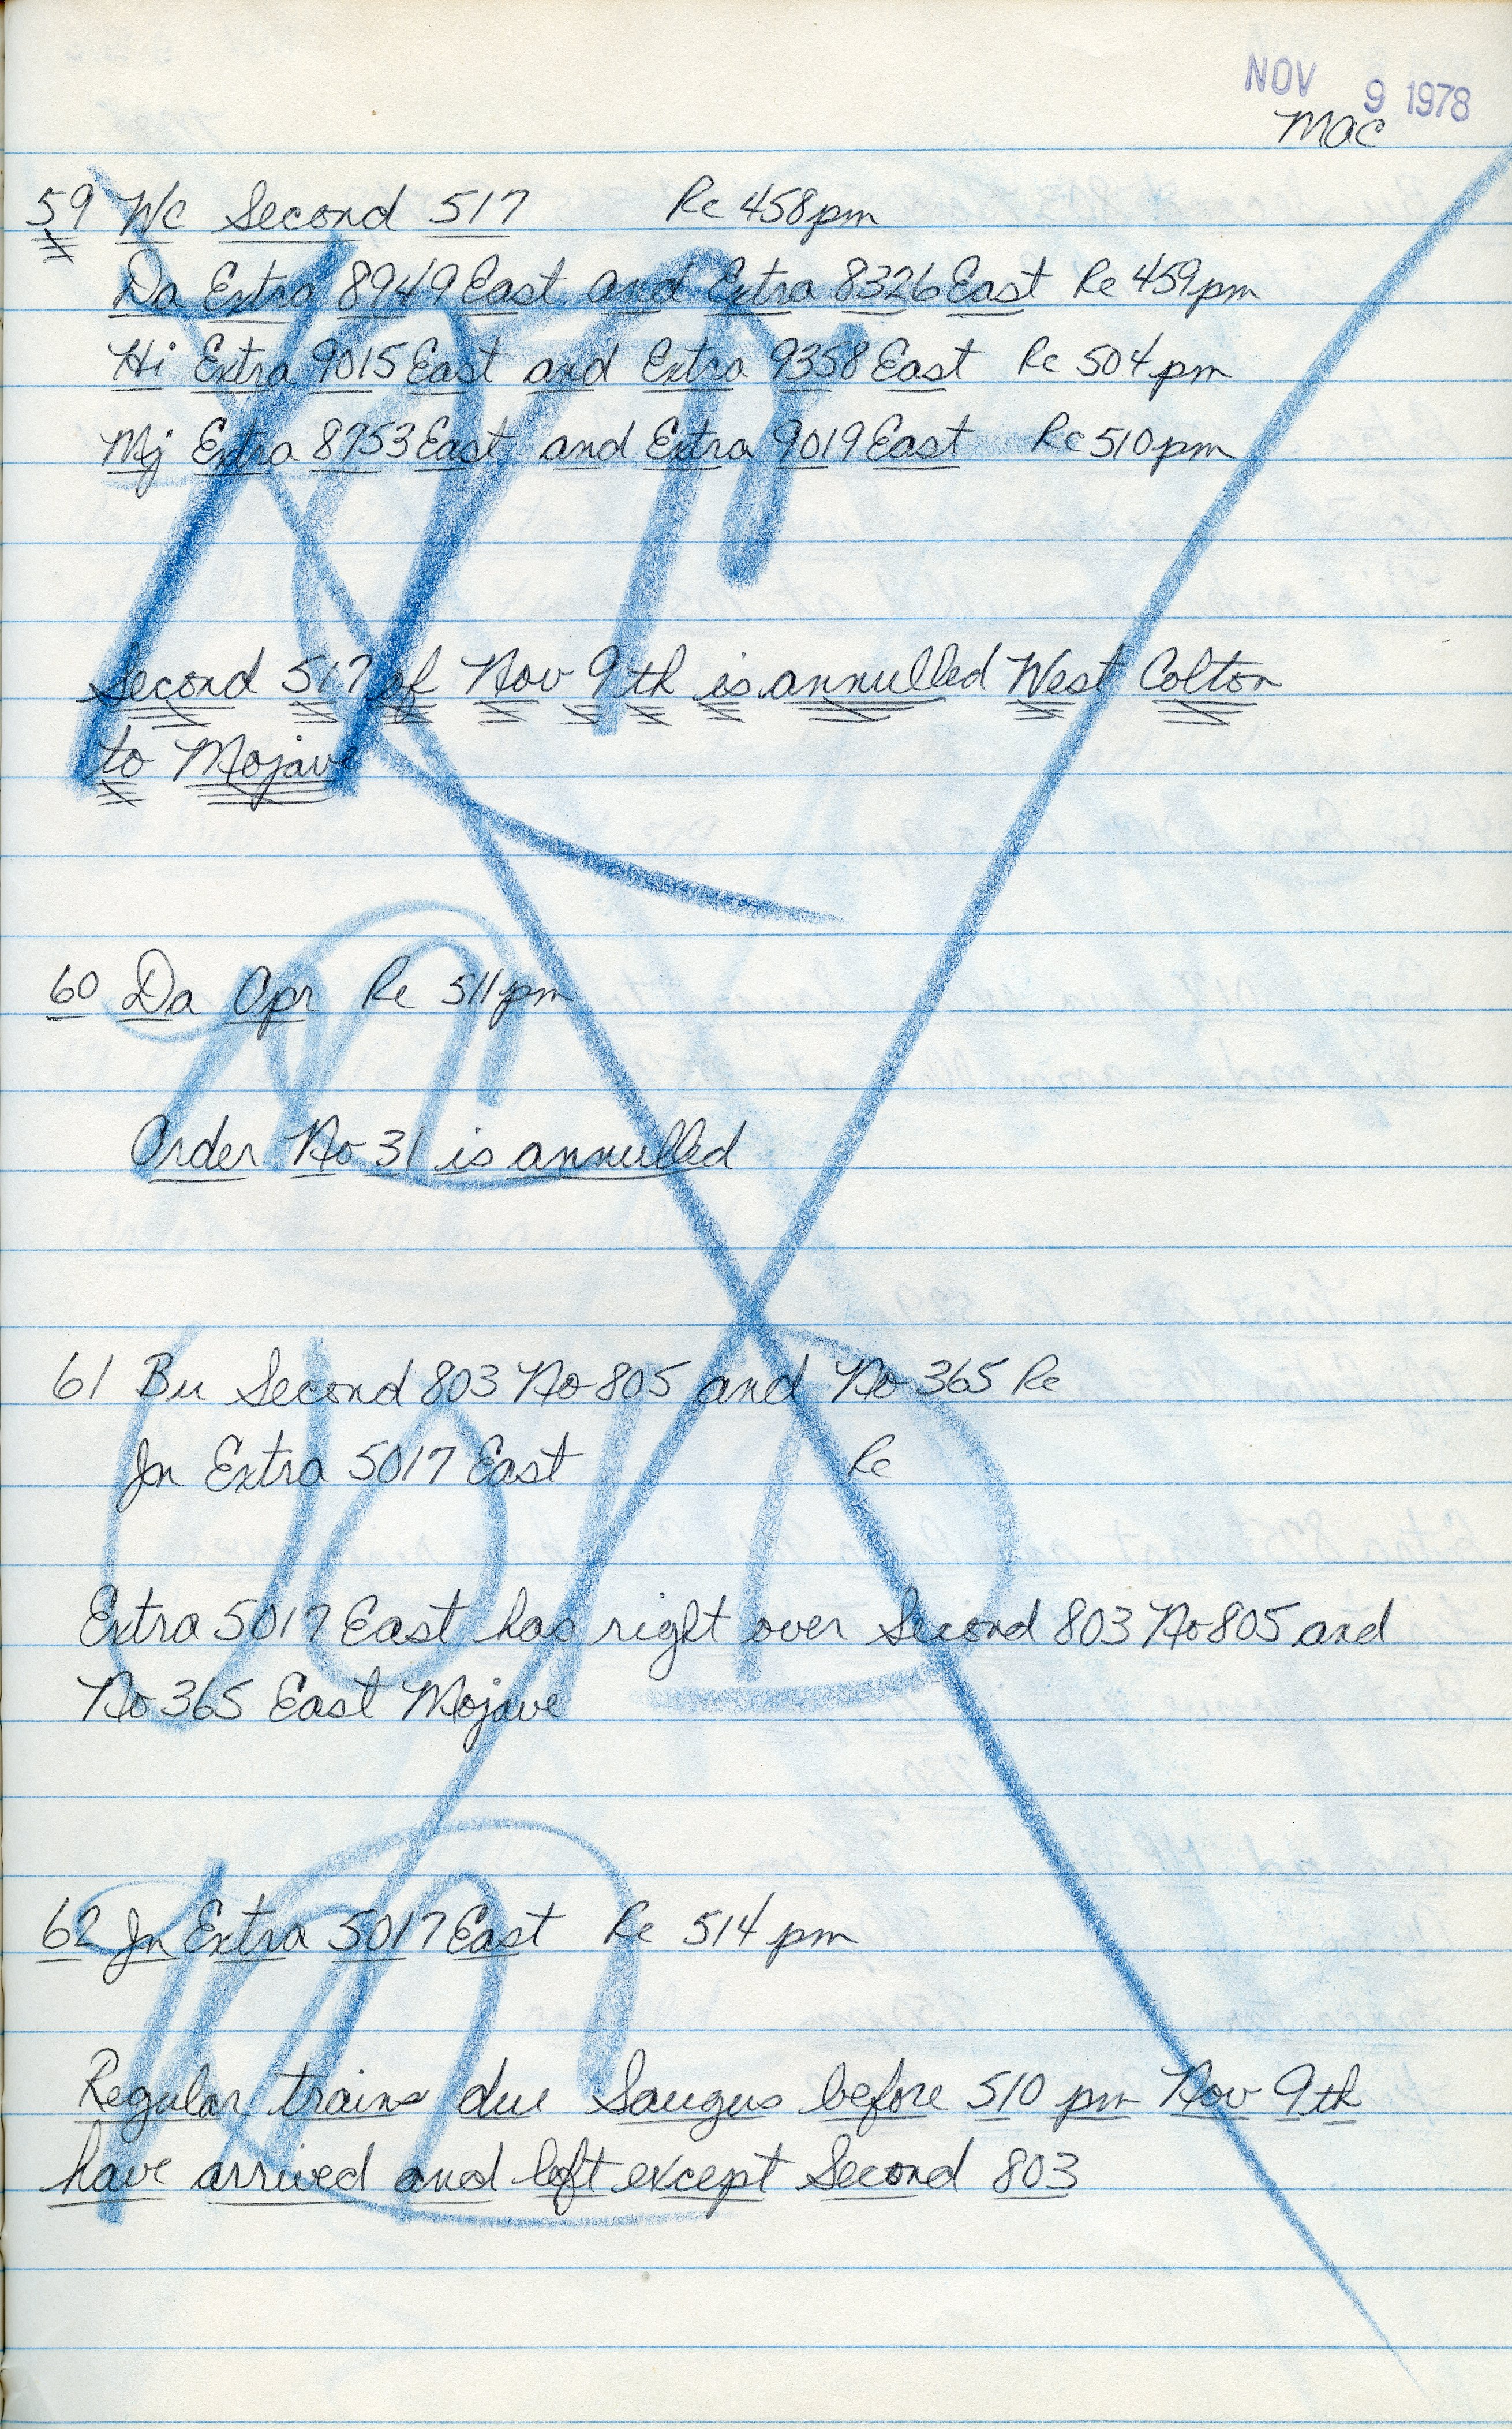 NOV 9 1978
Mac
59 Wc Second 517 Re 458pm
Da Extra 8949 East and Extra 8326 East Re 459pm
Hi Extra 9015 East and Extra 9358 East Re 504pm
Mj Extra 8753 East and Extra 9019 East Re 510pm
Second 517 of Nov 9th is annulled West Colton
to Mojave
60 Da Opr Re 511pm
Order No 31 is annulled
61 Bu Second 803 No 805 and No 365 Re
Jn Extra 5017 East Re
Extra 5017 East has right over Second 803 No 805 and
No 365 East Mojave
62 Jn Extra 5017 East Re 514 pm
Regular trains due Saugus before 510 pm Nov 9th
have arrived and left except Second 803